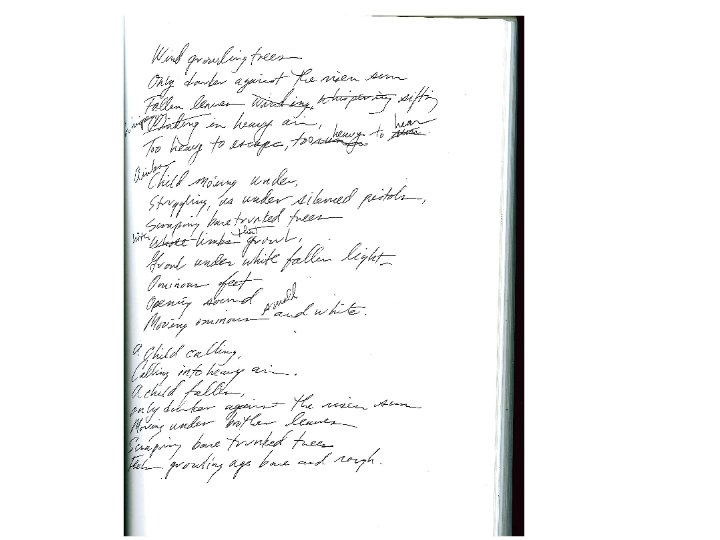 Wind growling trees
Only darker against the risen sun
Fallen leaves sifting
in heavy air,
Too heavy to escape, too heavy to hear
Child moving under,
Struggling, as under silenced pistols,
Scraping bare trunked trees
with limbs that growl,
Growl under white fallen light
Ominous feet
Opening sound
Moving ominous and white.
a Child calling,
Calling into heavy air.
A child fallen,
only darker against the risen sun
Moving under brother leaves
Scraping bare trunked trees
growling age bare and rough.